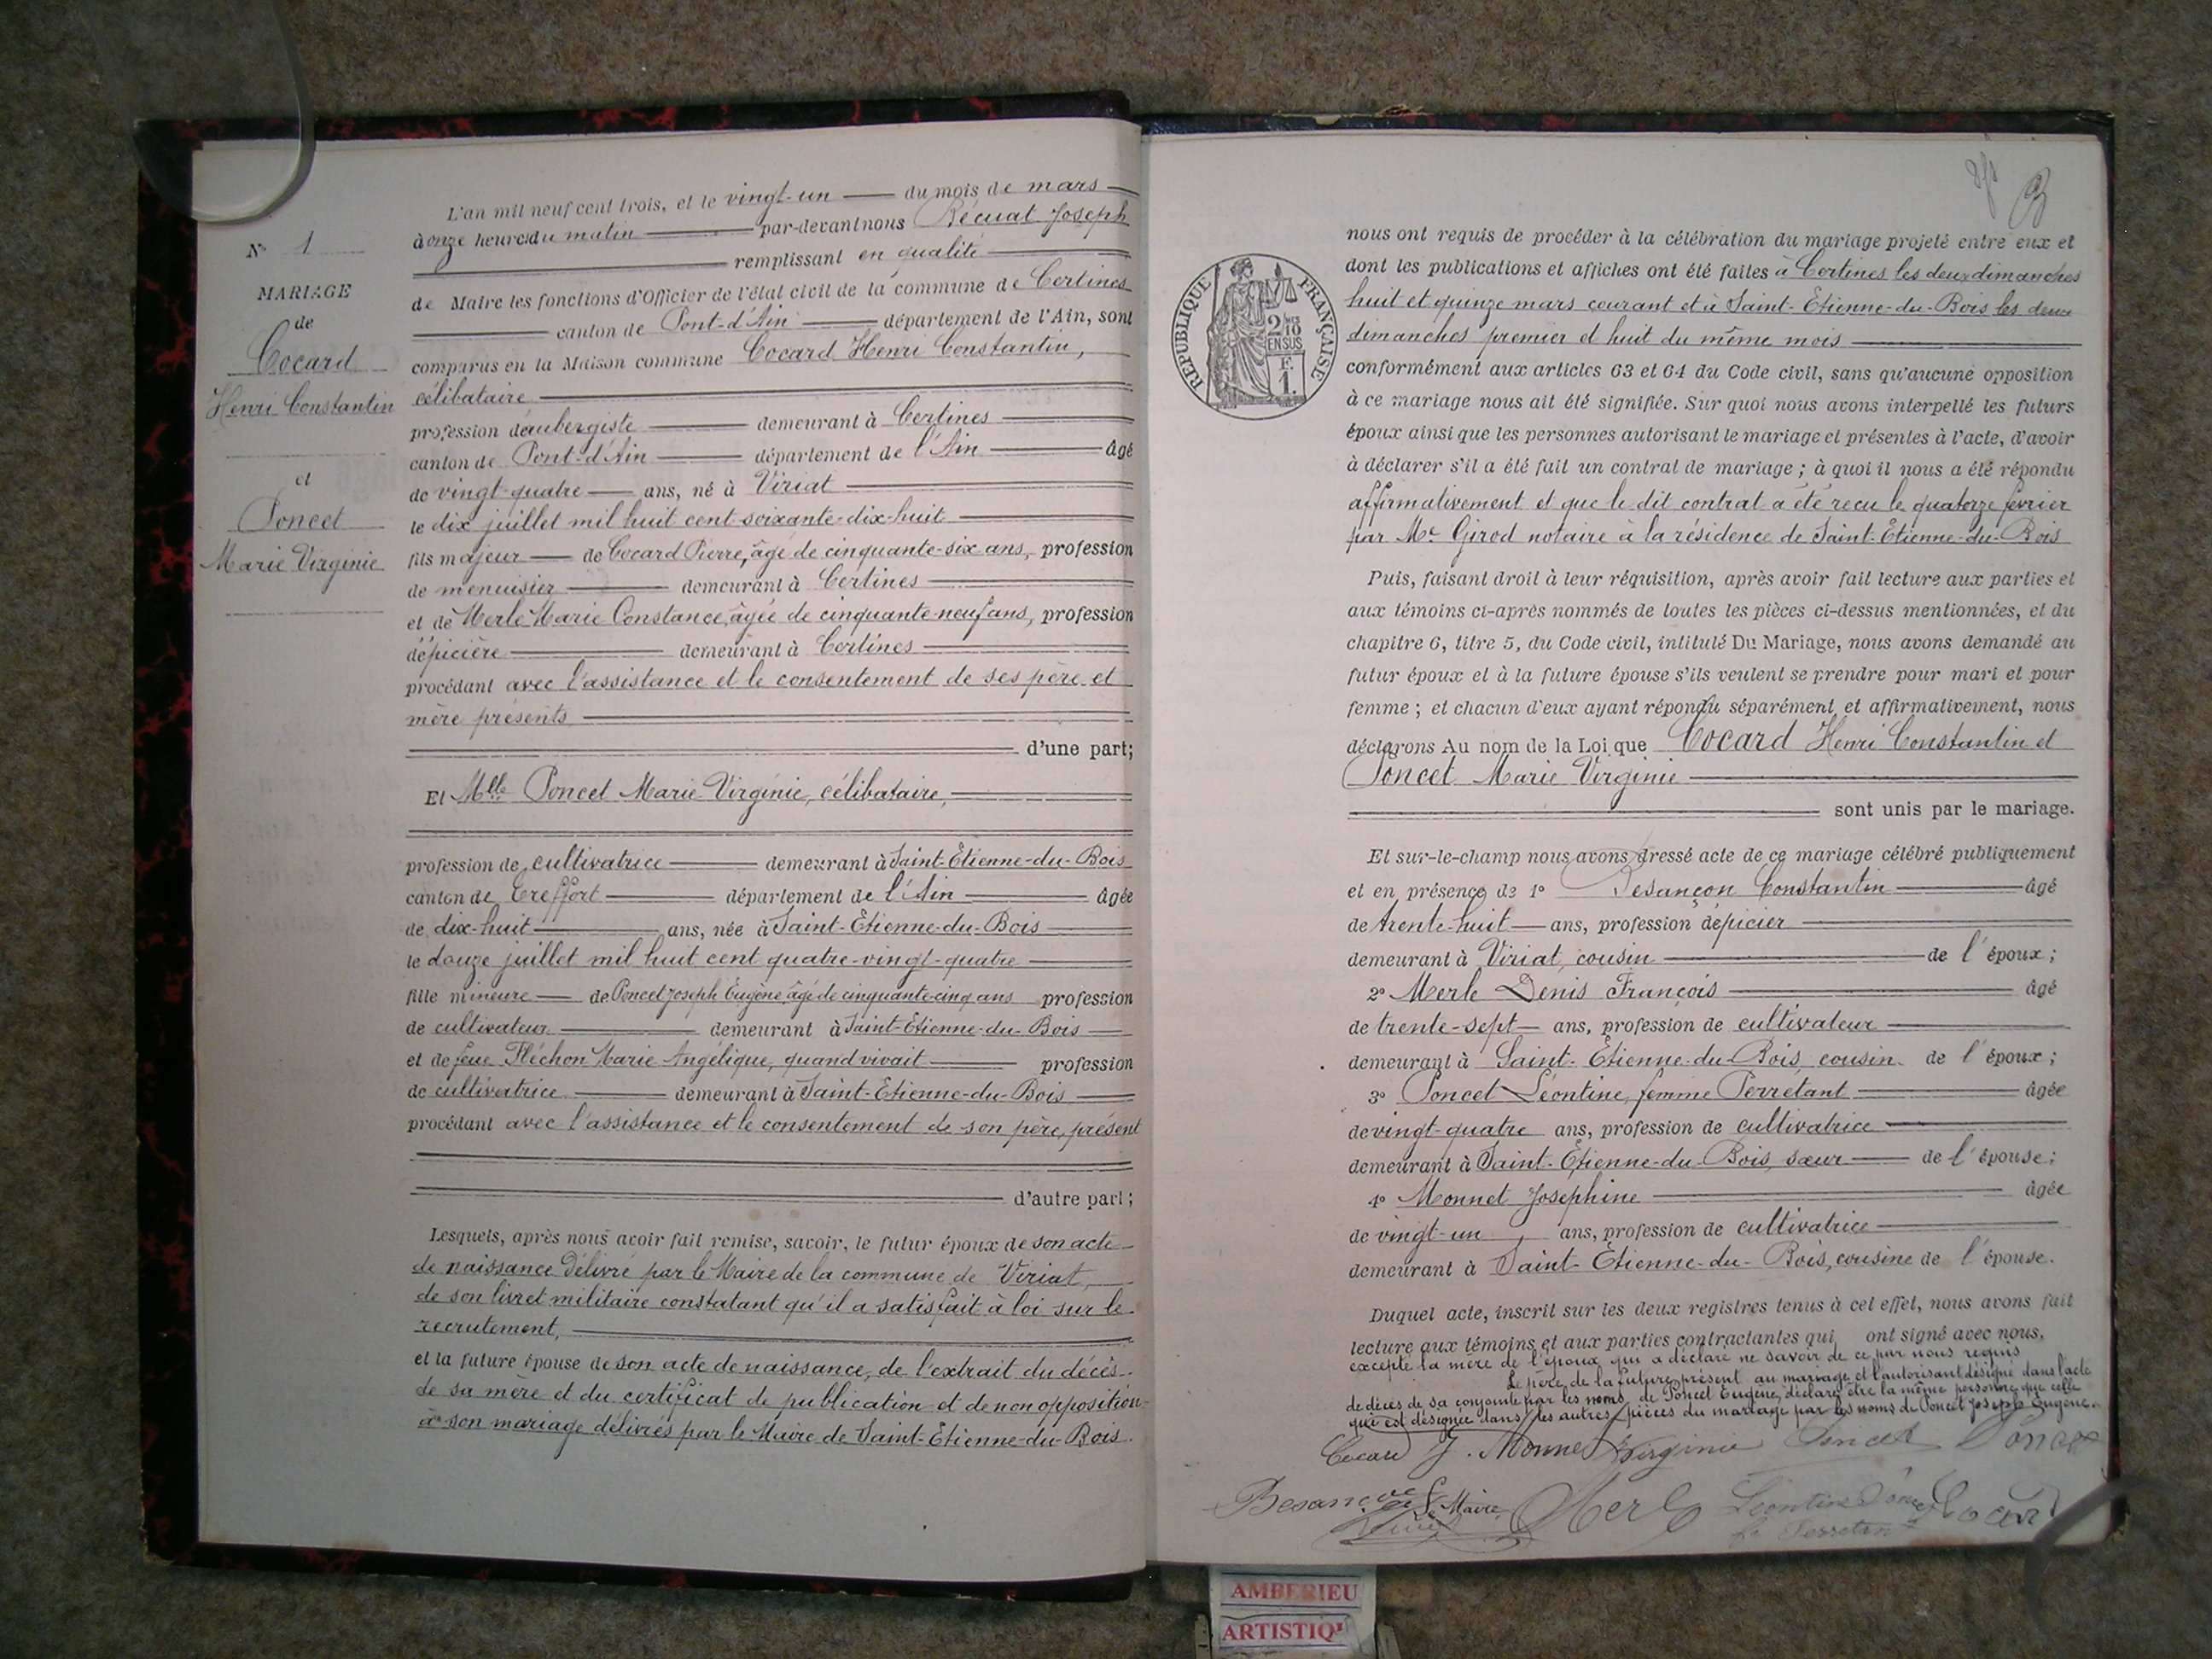 N° 1
MARIAGE
de
Cocard
Henri Constantin
et
Poncet
Marie Virginie
L'an mil neuf cent trois, et le vingt-un du mois de mars
à onze heures du matin par-devant nous Récuat Joseph
remplissant en qualité
de Maire les fonctions d'Officier de l'état civil de la commune de Certines
canton de Pont-d'Ain département de l'Ain, sont
comparus en la Maison commune Cocard Henri Constantin,
célibataire
profession d'aubergiste demeurant à Certines
canton de Pont-d'Ain département de l'Ain âgé
de vingt-quatre ans, né à Viriat
le dix juillet mil huit cent soixante-dix-huit
fils majeur de Cocard Pierre, âgé de cinquante-six ans, profession
de menuisier demeurant à Certines
et de Merle Marie Constance, âgée de cinquante-neuf ans, profession
d'épicière demeurant à Certines
procédant avec l'assistance et le consentement de ses père et
mère présents
d'une part;
Et Mlle Poncet Marie Virginie, célibataire,
profession de cultivatrice demeurant à Saint-Etienne-du-Bois
canton de Treffort département de l'Ain âgée
de dix-huit ans, née à Saint-Etienne-du-Bois
le douze juillet mil huit cent quatre-vingt-quatre
fille mineure de Poncet Joseph Eugène, âgé de cinquante-cinq ans profession
de cultivateur demeurant à Saint-Etienne-du-Bois
et de feue Fléchon Marie Angélique, quand vivait profession
de cultivatrice demeurant à Saint-Etienne-du-Bois
procédant avec l'assistance et le consentement de son père, présent
d'autre part;
Lesquels, après nous avoir fait remise, savoir, le futur époux de son acte
de naissance délivré par le Maire de la commune de Viriat,
de son livret militaire constatant qu'il a satisfait à loi sur le
recrutement,
et la future épouse de son acte de naissance, de l'extrait du décès
de sa mère et du certificat de publication et de non opposition
à son mariage délivrés par le Maire de Saint-Etienne-du-Bois.
RÉPUBLIQUE FRANÇAISE
2/10
EN SUS
F.
1.
nous ont requis de procéder à la célébration du mariage projeté entre eux et
dont les publications et affiches ont été faites à Certines les deux dimanches
huit et quinze mars courant et à Saint-Etienne-du-Bois les deux
dimanches premier et huit du même mois
conformément aux articles 63 et 64 du Code civil, sans qu'aucune opposition
à ce mariage nous ait été signifiée. Sur quoi nous avons interpellé les futurs
époux ainsi que les personnes autorisant le mariage et présentes à l'acte, d'avoir
à déclarer s'il a été fait un contrat de mariage ; à quoi il nous a été répondu
affirmativement et que le dit contrat a été recu le quatorze février
par Me Girod notaire à la résidence de Saint-Etienne-du-Bois
Puis, faisant droit à leur réquisition, après avoir fait lecture aux parties et
aux témoins ci-après nommés de toutes les pièces ci-dessus mentionnées, et du
chapitre 6, titre 5, du Code civil, intitulé Du Mariage, nous avons demandé au
futur époux et à la future épouse s'ils veulent se prendre pour mari et pour
femme ; et chacun d'eux ayant répondu séparément et affirmativement, nous
déclarons Au nom de la Loi que Cocard Henri Constantin et
Poncet Marie Virginie
sont unis par le mariage.
Et sur-le-champ nous avons dressé acte de ce mariage célébré publiquement
et en présence de 1° Besançon Constantin âgé
de trente-huit ans, profession d'épicier
demeurant à Viriat, cousin de l'époux ;
2° Merle Denis François âgé
de trente-sept ans, profession de cultivateur
demeurant à Saint-Etienne-du-Bois, cousin de l'époux ;
3° Poncet Léontine, femme Perrétant âgée
de vingt-quatre ans, profession de cultivatrice
demeurant à Saint-Etienne-du-Bois, sœur de l'épouse ;
4° Monnet Joséphine âgée
de vingt-un ans, profession de cultivatrice
demeurant à Saint-Etienne-du-Bois, cousine de l'épouse.
Duquel acte, inscrit sur les deux registres tenus à cet effet, nous avons fait
lecture aux témoins et aux parties contractantes qui ont signé avec nous,
excepté la mère de l'époux qui a déclaré ne savoir de ce par nous requis
Le père de la future présent au mariage et l'autorisant désigné dans l'acte
de décès de sa conjointe par les noms de Poncet Eugène, déclare être la même personne que celle
qui est désignée dans les autres pièces du mariage par les noms de Poncet Joseph Eugène.
Cocard J. Monnet Virginie Poncet Poncet
Besançon Le Maire, Merle Léontine Poncet Cocard
fe Perretant
AMBERIEU
ARTISTIQ